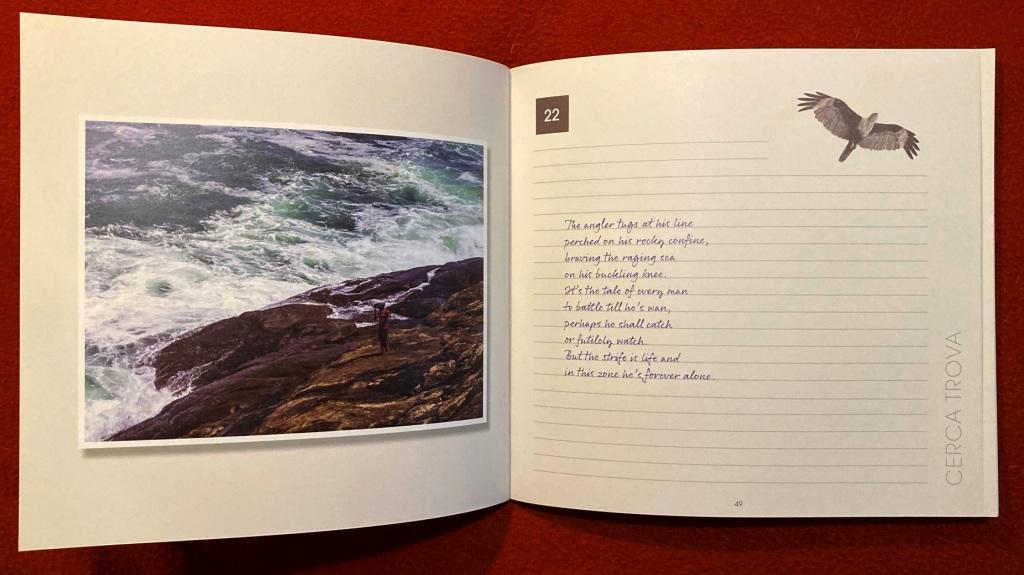 22
The angler tugs at his line
perched on his rocky confine,
braving the raging sea
on his buckling knee.
It's the tale of every man
to battle till he's wan,
perhaps he shall catch
or futilely watch.
But the strife is life and
in this zone he's forever alone.
CERCA TROVA
49